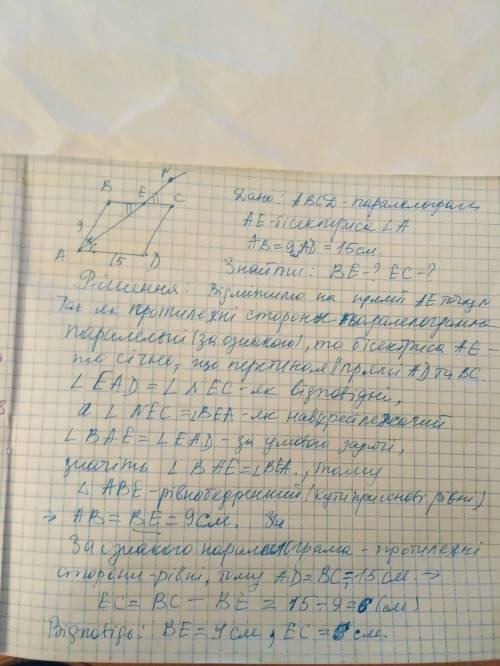 N
B E C
9
A 15 D
Дано: ABCD - паралелограм
AE - бісектриса ∠A
AB = 9, AD = 15 см.
Знайти: BE - ? EC - ?
Рішення: Відмітимо на прямій AE точку N
Так як протилежні сторони паралелограма
паралельні (за ознакою), то бісектриса AE -
то січна, що перетином || прямі AD та BC.
∠ EAD = ∠ NEC - як відповідні,
а ∠ NEC = ∠BEA - як навхрест
∠ BAE = ∠ EAD - за умовою задачі,
значить ∠ BAE = ∠ BEA, тому
△ ABE - рівнобедренний (кути при основі рівні)
→ AB = BE = 9 см. За
За ознакою паралелограма - протилежні
сторони - рівні, тому AD = BC = 15 см. →
EC = BC - BE = 15 - 9 = 6 (см)
Відповідь: BE = 9 см, EC = 6 см.